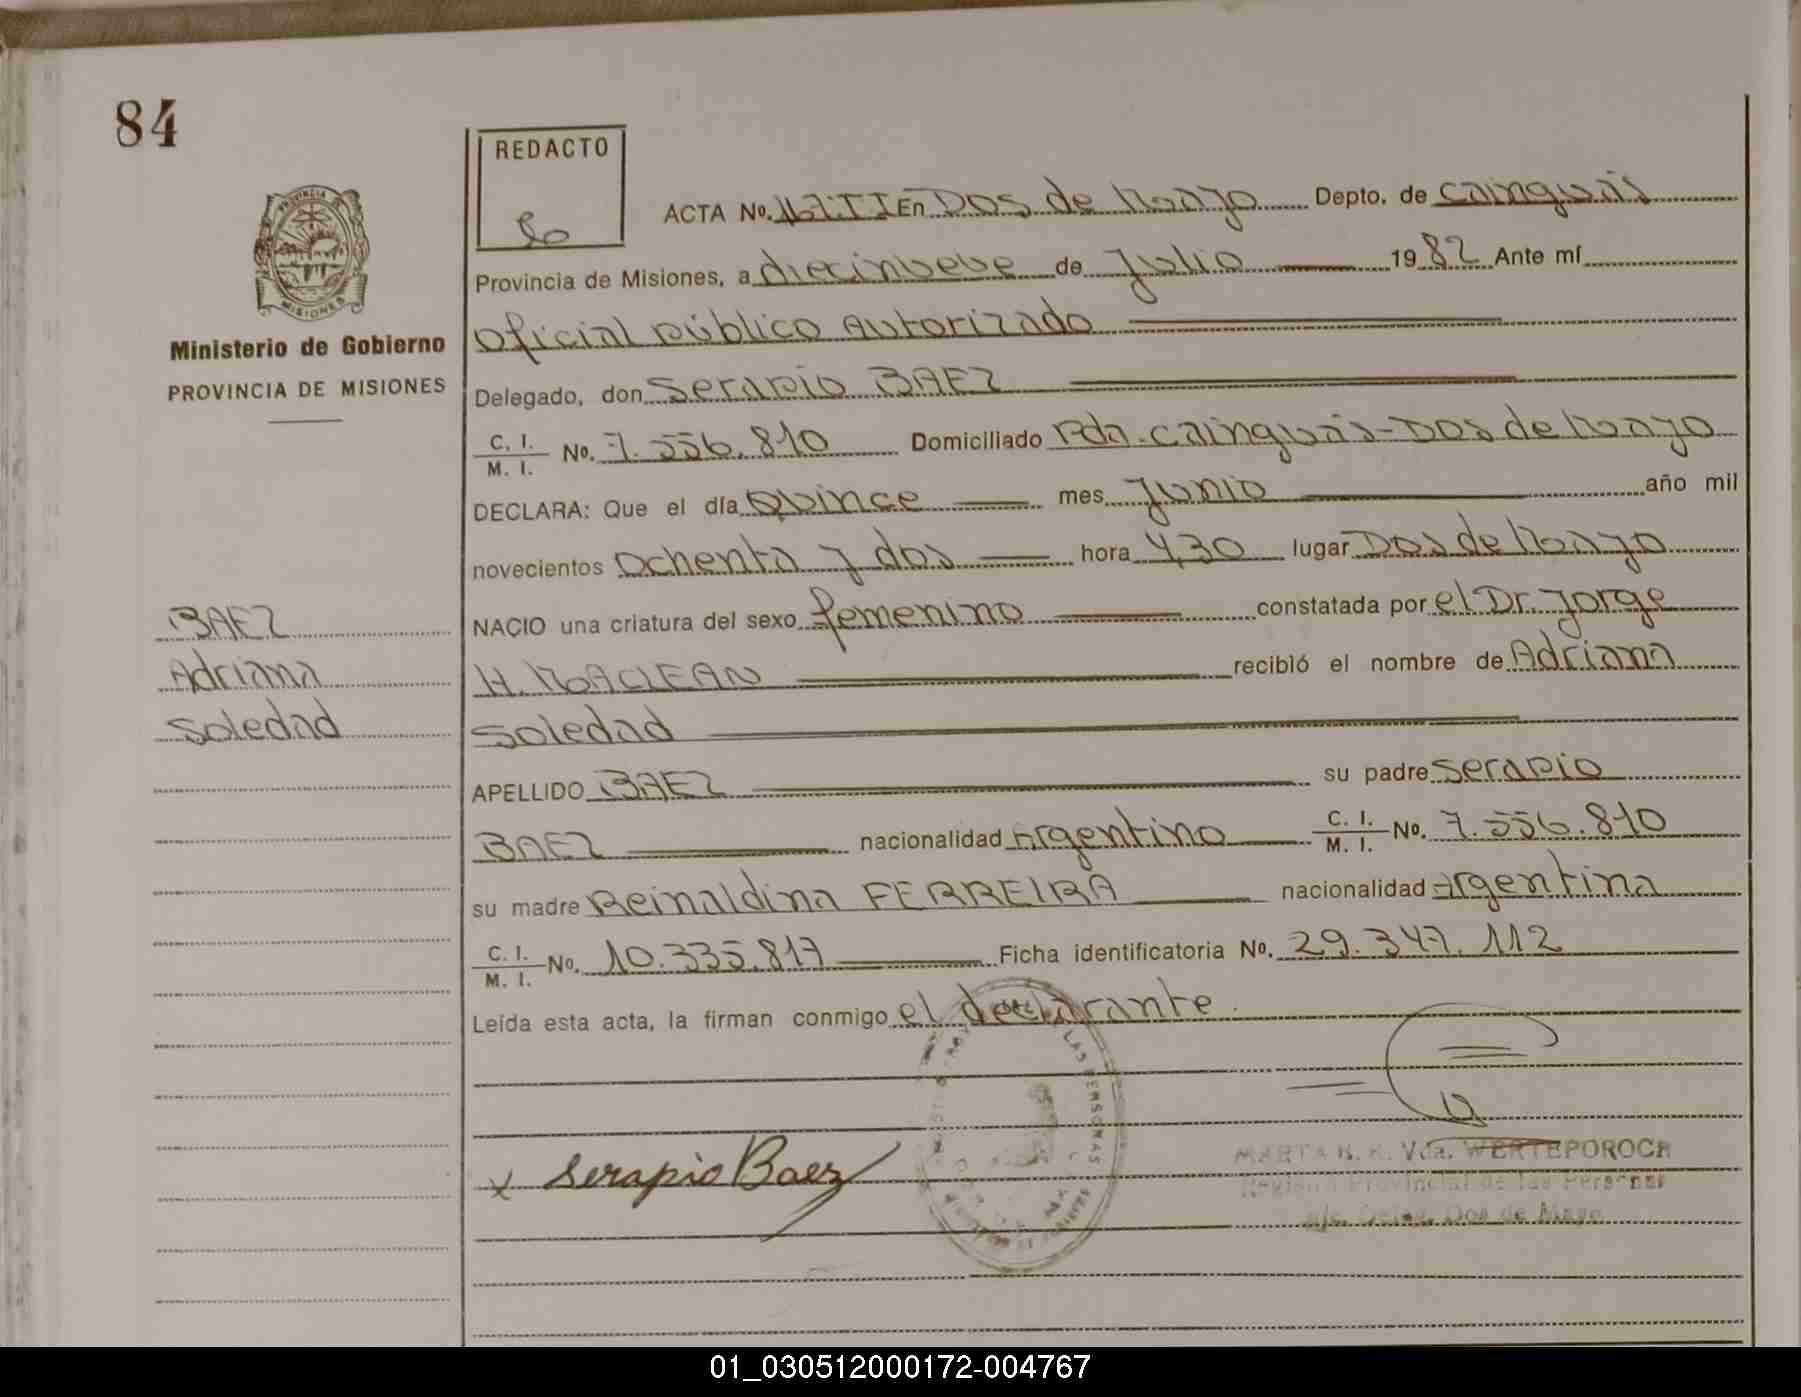 84
REDACTO
ACTA No. 167 TI En Dos de Mayo Depto. de Cainguás
Provincia de Misiones, a diecinueve de Julio 1982 Ante mí
Oficial público Autorizado
Ministerio de Gobierno
PROVINCIA DE MISIONES
Delegado, don Serapio BAEZ
C. I. / M. I. No. 7.556.810 Domiciliado Pda. Cainguás-Dos de Mayo
DECLARA: Que el día Quince mes Junio año mil
novecientos Ochenta y dos hora 4,30 lugar Dos de Mayo
BAEZ
NACIO una criatura del sexo femenino constatada por el Dr. Jorge
Adriana
H. MACLEAN recibió el nombre de Adriana
Soledad
Soledad
APELLIDO BAEZ su padre Serapio
BAEZ nacionalidad Argentino C. I. / M. I. No. 7.556.810
su madre Reinaldina FERREIRA nacionalidad Argentina
C. I. / M. I. No. 10.335.817 Ficha identificatoria No. 29.347.112
Leída esta acta, la firman conmigo el declarante.
LAS PERSONAS
x Serapio Baez
Vda. WERTEPOROCH
Registro Provincial de las Personas
Deleg. Dos de Mayo
01_030512000172-004767